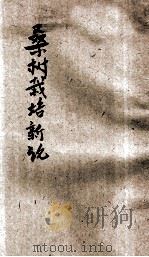 桑树栽培新说
研狗
mtoou.info